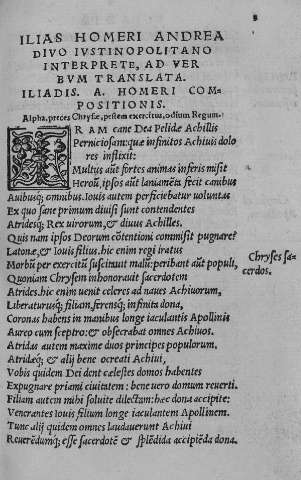 3
ILIAS HOMERI ANDREA
DIVO IVSTINOPOLITANO
INTERPRETE, AD VER
BVM TRANSLATA.
ILIADIS. A. HOMERI COM-
POSITIONIS.
Alpha, preces Chrysæ, pestem exercitus, odium Regum.
IRAM cane Dea Pelidæ Achillis
Perniciosam: quæ infinitos Achiuis dolo
res inflixit:
Multas aũt fortes animas inferis misit
Heroũ, ipsos aũt laniamẽta fecit canibus
Auibusq; omnibus. Iouis autem perficiebatur uoluntas
Ex quo sane primum diuisi sunt contendentes
Atridesq; Rex uirorum, & diuus Achilles.
Quis nam ipsos Deorum cõtentioni commisit pugnare?
Latonæ, & Iouis filius. hic enim regi iratus
Morbũ per exercitũ suscitauit malũ: peribant aũt populi,
Chryses sa-
cerdos.
Quoniam Chrysem inhonorauit sacerdotem
Atrides. hic enim uenit celeres ad naues Achiuorum,
Liberaturusq; filiam, ferensq; infinita dona,
Coronas habens in manibus longe iaculantis Apollinis
Aureo cum sceptro: & obsecrabat omnes Achiuos.
Atridas autem maxime duos principes populorum.
Atridæq; & alij bene ocreati Achiui,
Vobis quidem Dei dent cælestes domos habentes
Expugnare priami ciuitatem: bene uero domum reuerti.
Filiam autem mihi soluite dilectam: hæc dona accipite:
Venerantes Iouis filium longe iaculantem Apollinem.
Tunc alij quidem omnes laudauerunt Achiui
Reuerẽdumq; esse sacerdotẽ & splẽdida accipiẽda dona.